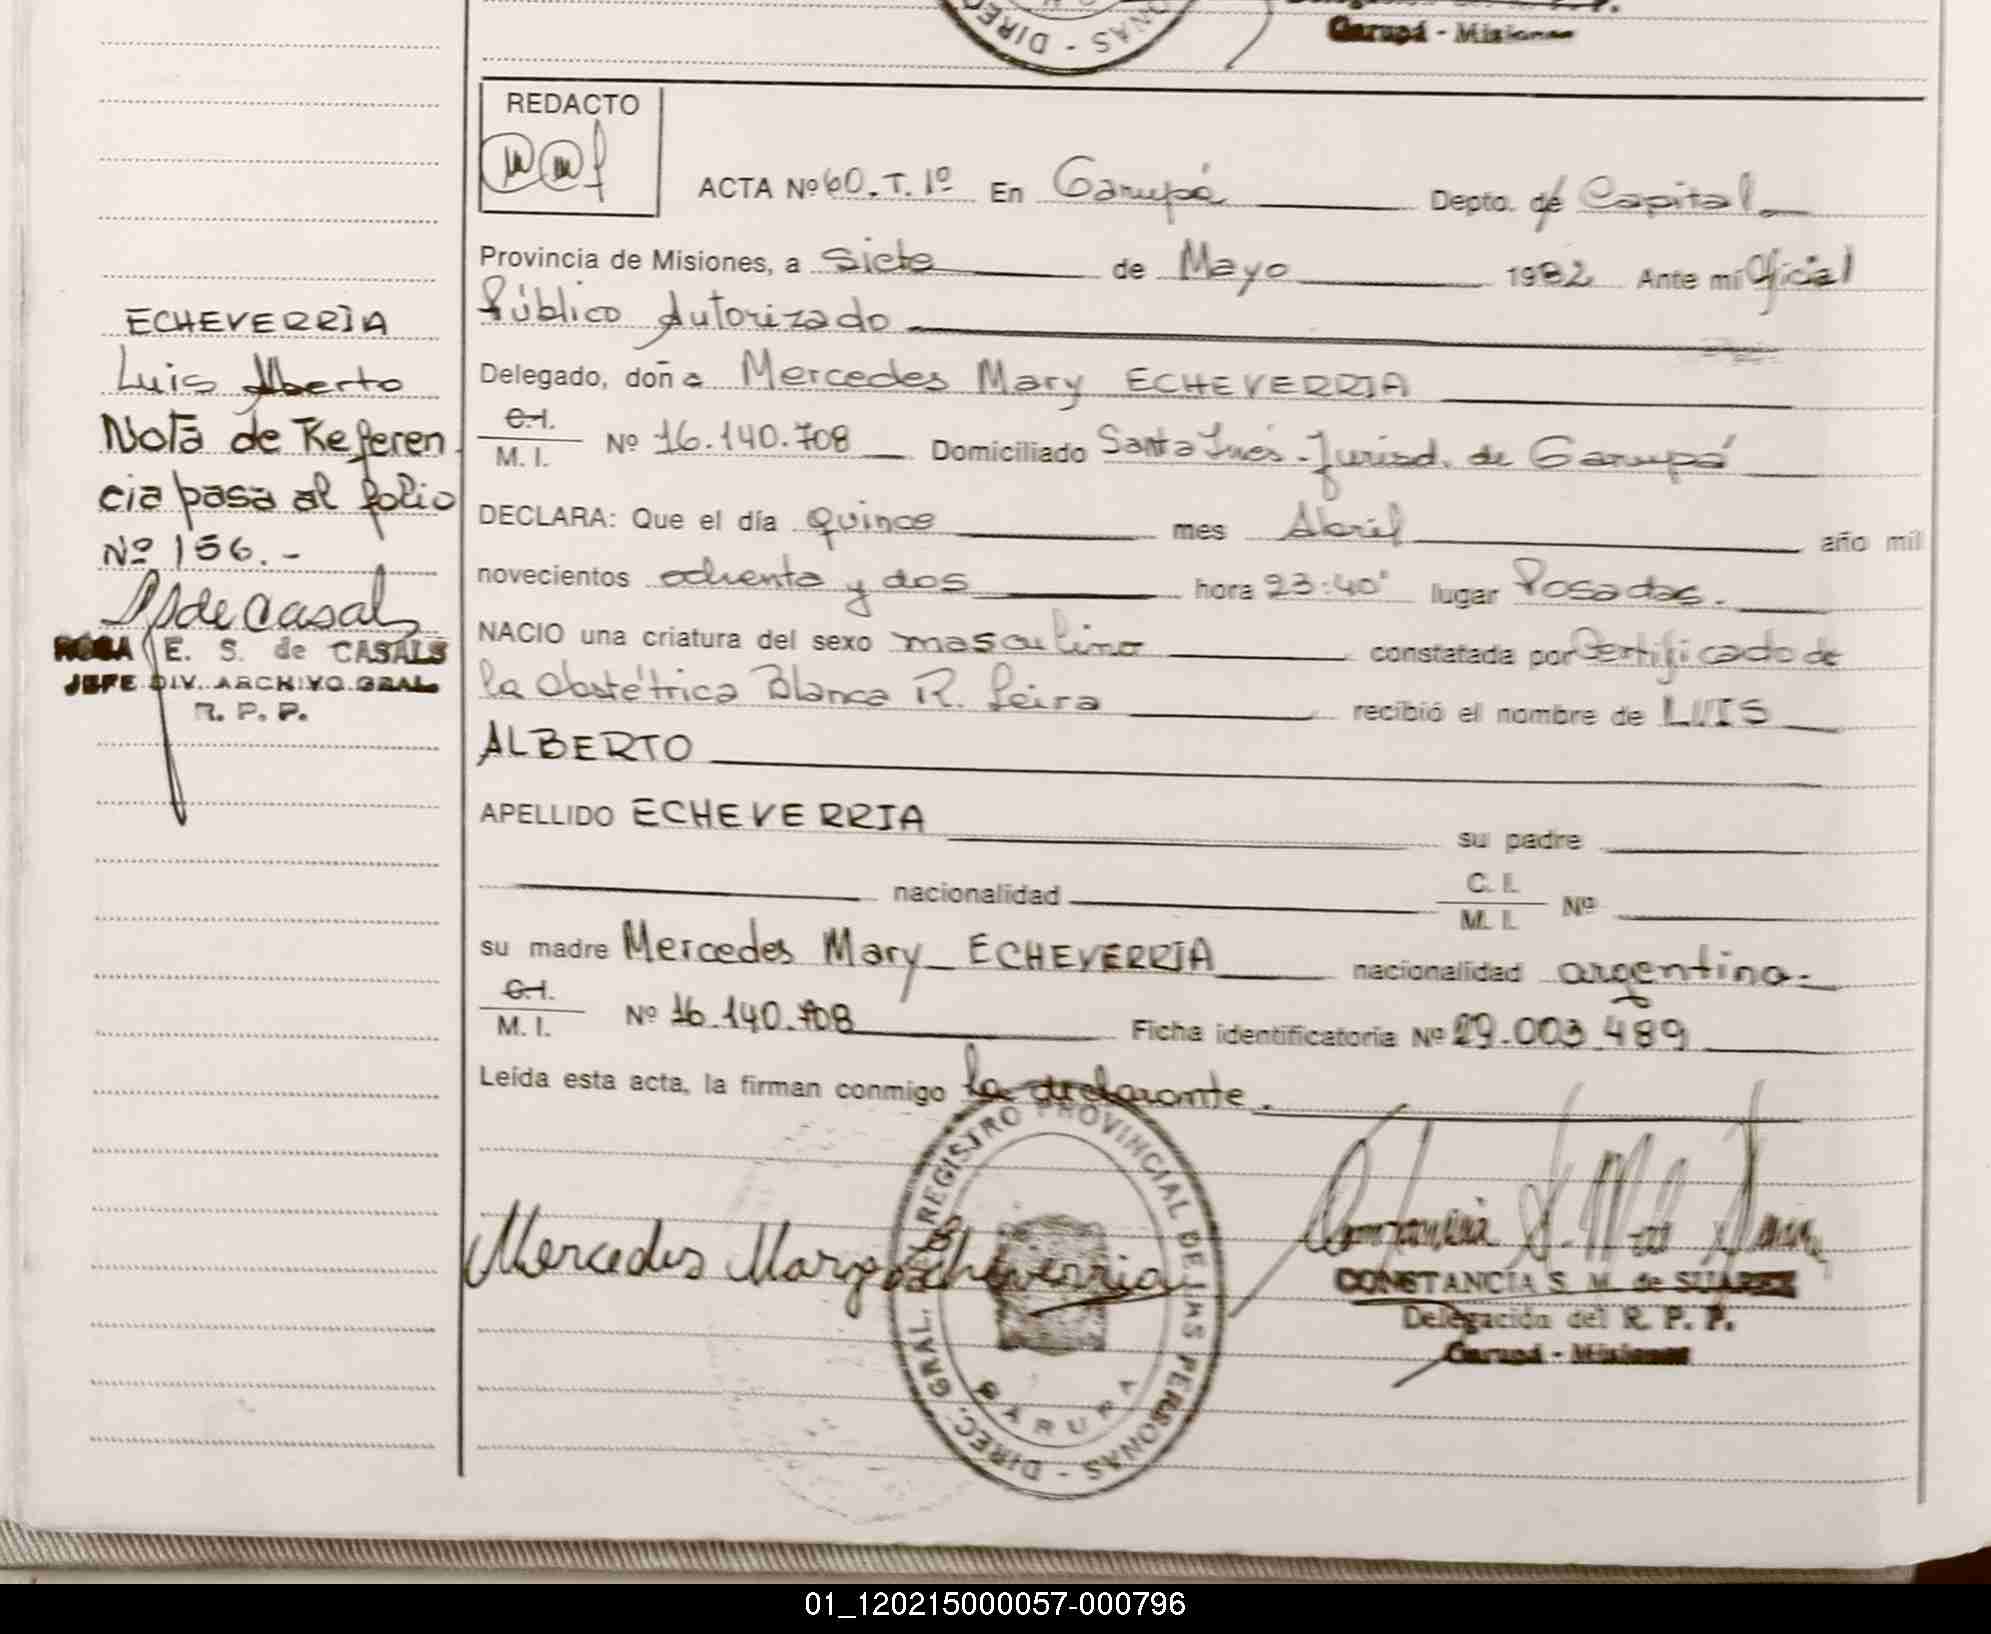 DIREC
NAS
Garupá - Misiones
REDACTO
ACTA Nº 60. T. 1º En Garupá Depto. de Capital
Provincia de Misiones, a siete de Mayo 1982 Ante mí Oficial
Público Autorizado
Delegado, doña Mercedes Mary ECHEVERRIA
C.I.
M. I. Nº 16.140.708 Domiciliado Santa Inés - Jurisd. de Garupá
DECLARA: Que el día quince mes Abril año mil
novecientos ochenta y dos hora 23:40' lugar Posadas.
NACIO una criatura del sexo masculino constatada por Certificado de
la Obstétrica Blanca R. Leira recibió el nombre de LUIS
ALBERTO
APELLIDO ECHEVERRIA su padre
nacionalidad C. I.
M. I. Nº
su madre Mercedes Mary ECHEVERRIA nacionalidad argentina.-
C.I.
M. I. Nº 16.140.708 Ficha identificatoria Nº 29.003.489
Leída esta acta, la firman conmigo la declarante.
Mercedes Mary Echeverria
DIREC. GRAL. REGISTRO PROVINCIAL DE LAS PERSONAS -
GARUPA
CONSTANCIA S. M. de SUAREZ
Delegación del R. P. P.
Garupá - Misiones
ECHEVERRIA
Luis Alberto
Nota de Referen
cia pasa al folio
Nº 156.-
de Casals
ROSA E. S. de CASALS
JEFE DIV. ARCHIVO GRAL.
R. P. P.
01_120215000057-000796